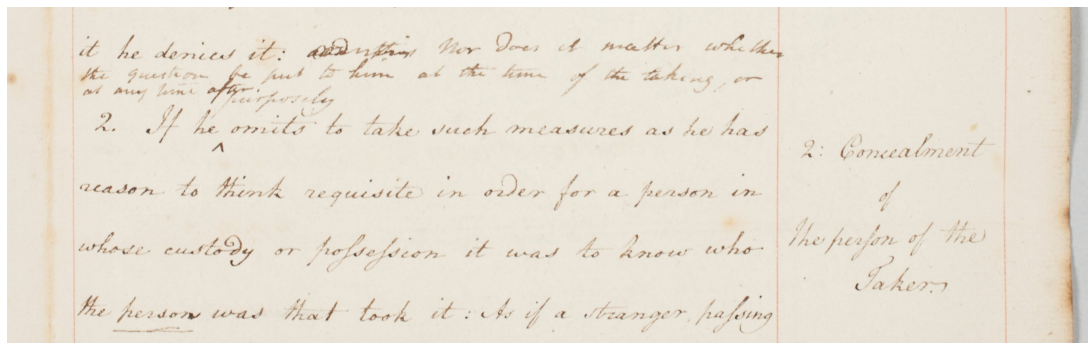 it he denies it: Nor does it matter whether
the question be put to him at the time of the taking, or
at any time after.
purposely
2. If he ^ omits to take such measures as he has
reason to think requisite in order for a person in
whose custody or possession it was to know who
the person was that took it: As if a stranger passing
2: Concealment
of
the person of the
Taker.